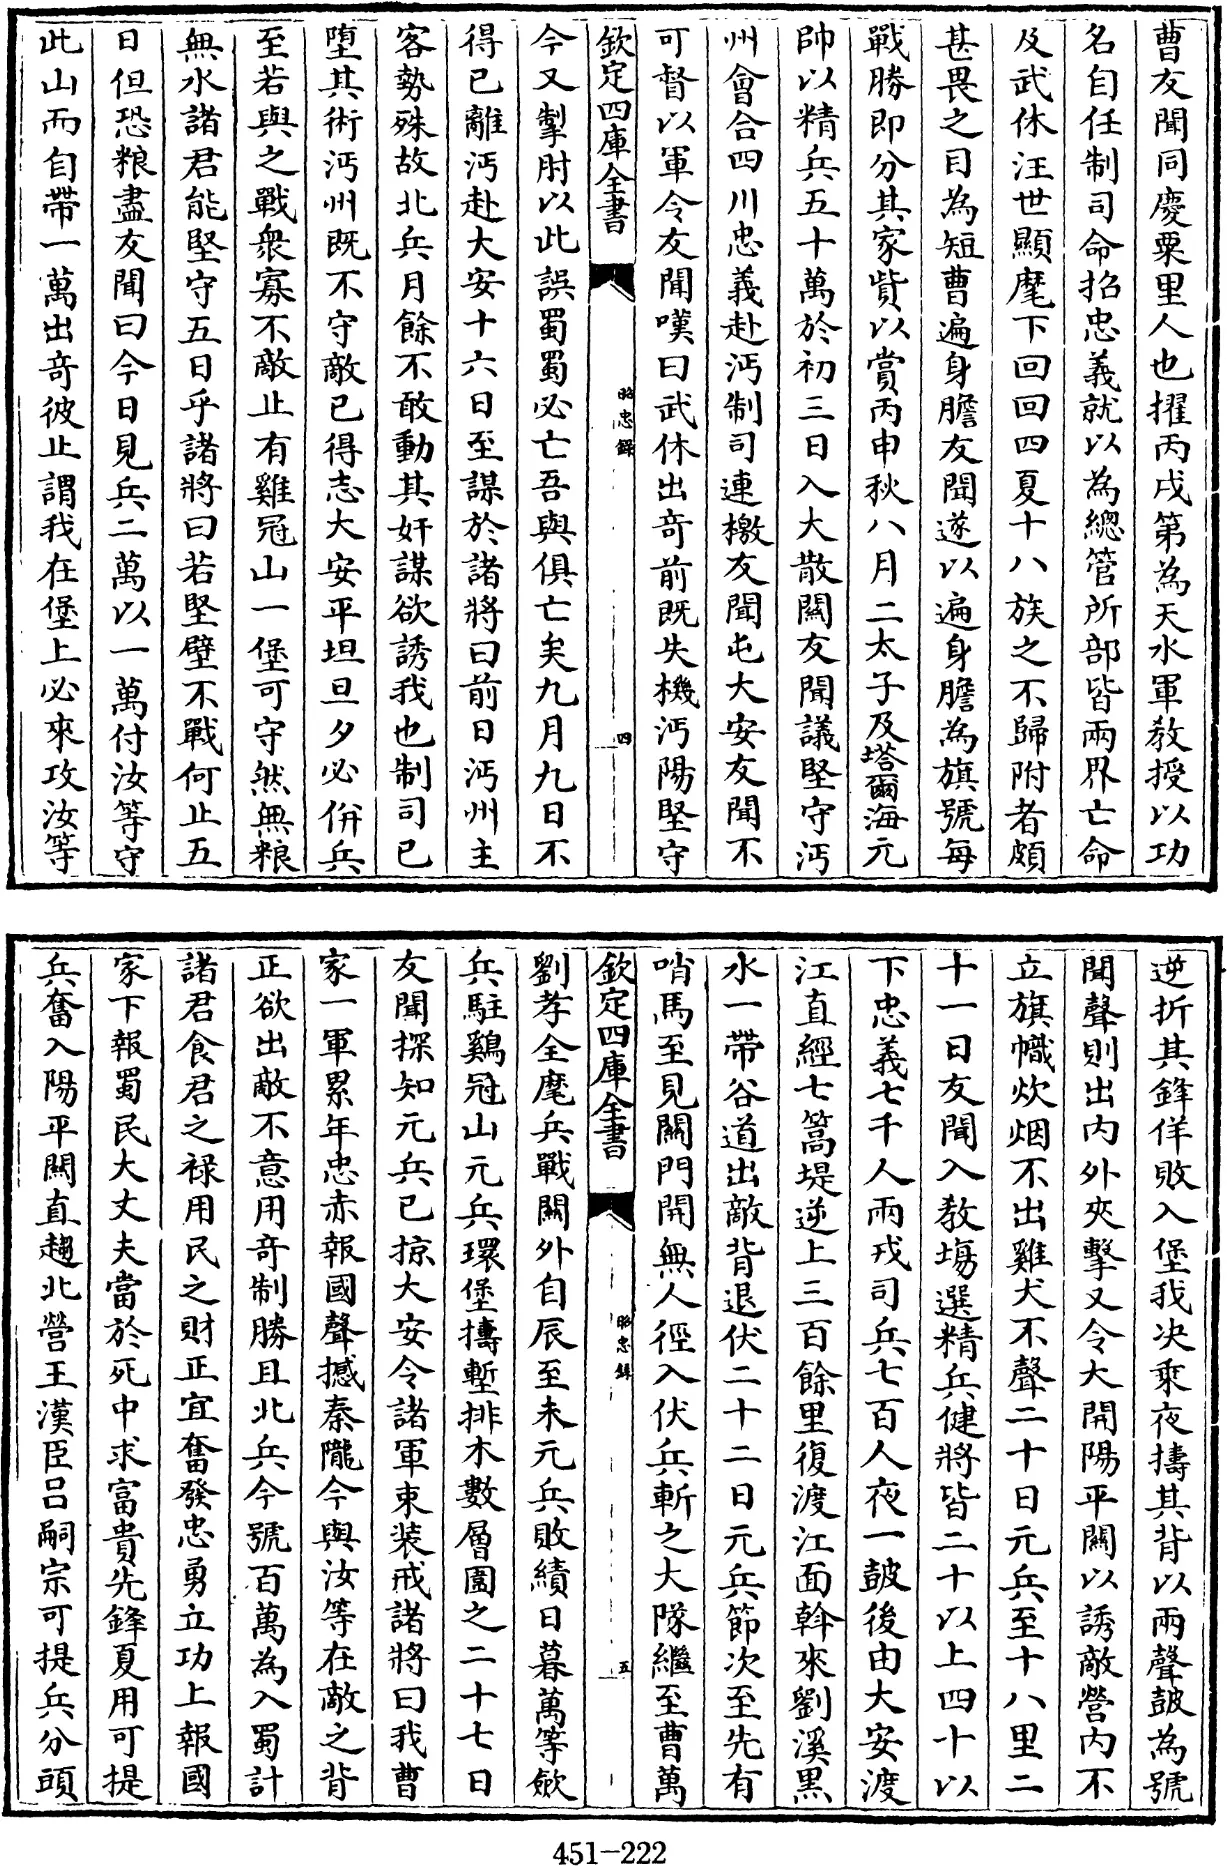 曹友聞同慶粟里人也擢丙戌第為天水軍教授以功
名自任制司命招忠義就以為總管所部皆兩界亡命
及武休汪世顯麾下回回四夏十八族之不歸附者頗
甚畏之目為短曹遍身膽友聞遂以遍身膽為旗號每
戰勝即分其家貲以賞丙申秋八月二太子及塔爾海元
帥以精兵五十萬於初三日入大散關友聞議堅守沔
州會合四川忠義赴沔制司連檄友聞屯大安友聞不
可督以軍令友聞嘆曰武休出奇前既失機沔陽堅守
欽定四庫全書
昭忠錄
四
今又掣肘以此誤蜀蜀必亡吾與俱亡矣九月九日不
得已離沔赴大安十六日至謀於諸將曰前日沔州主
客勢殊故北兵月餘不敢動其奸謀欲誘我也制司已
墮其術沔州既不守敵已得志大安平坦旦夕必併兵
至若與之戰衆寡不敵止有雞冠山一堡可守然無粮
無水諸君能堅守五日乎諸將曰若堅壁不戰何止五
日但恐粮盡友聞曰今日見兵二萬以一萬付汝等守
此山而自帶一萬出奇彼止謂我在堡上必來攻汝等
逆折其鋒佯敗入堡我決乘夜擣其背以兩聲鼓為號
聞聲則出內外夾擊又令大開陽平關以誘敵營內不
立旗幟炊烟不出雞犬不聲二十日元兵至十八里二
十一日友聞入教場選精兵健將皆二十以上四十以
下忠義七千人兩戎司兵七百人夜一鼓後由大安渡
江直經七篙堤逆上三百餘里復渡江面斡來劉溪黑
水一帶谷道出敵背退伏二十二日元兵節次至先有
哨馬至見關門開無人徑入伏兵斬之大隊繼至曹萬
欽定四庫全書
昭忠錄
五
劉孝全麾兵戰關外自辰至未元兵敗績日暮萬等歛
兵駐鷄冠山元兵環堡擣塹排木數層圍之二十七日
友聞探知元兵已掠大安令諸軍束裝戒諸將曰我曹
家一軍累年忠赤報國聲撼秦隴今與汝等在敵之背
正欲出敵不意用奇制勝且北兵今號百萬為入蜀計
諸君食君之禄用民之財正宜奮發忠勇立功上報國
家下報蜀民大丈夫當於死中求富貴先鋒夏用可提
兵奮入陽平關直趨北營王漢臣吕嗣宗可提兵分頭
451-222